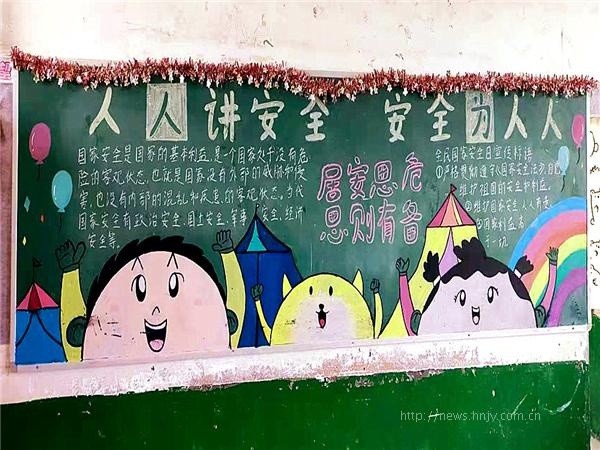 人人讲安全 安全为人人
国家安全是国家的基本利益,是一个国家处于没有危
险的客观状态,也就是国家没有外部的威胁和侵
害,也没有内部的混乱和疾患的客观状态。当代
国家安全有政治安全、国土安全、军事安全、经济
安全等。
居安思危
思则有备
全民国家安全日宣传标语
①严格遵守国家安全法,自己
维护祖国的安全和利益。
②维护国家安全 人人有责
国家利益高
于一切
http://news.hnjy.com.cn